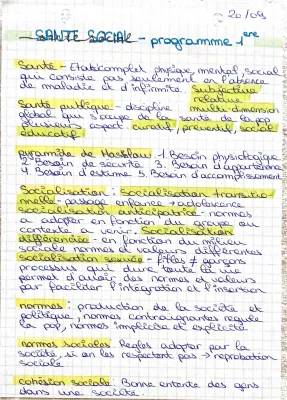 20/09
SANTE SOCIAL - programme 1ere
Santé - Etat complet physique, mental, social
qui consiste pas seulement en l'absence
de maladie et d'infirmité. subjective
relative
Santé publique - discipline multi-dimension
global qui s'occupe de la santé de la pop
plusieurs aspect curatif, préventif, social
éducatif
pyramide de Maslow - 1. Besoin physiologique
2. Besoin de sécurité 3. Besoin d'appartenance
4. Besoin d'estime 5. Besoin d'accomplissement
Socialisation : Socialisation transitio
nnelle - passage enfance → adolescence
socialisation anticipatrice - normes
à adopter en fonction du groupe ou
contexte à venir. Socialisation
différenciée - en fonction du milieu
sociale normes et valeurs différentes
socialisation sexuée - filles ≠ garçons
processus qui dure toute la vie
permet d'avoir des normes et valeurs
par faciliter l'intégration et l'insertion
normes : production de la société et
politique, normes contraignantes regule
la pop, normes implicite et explicite.
normes sociales Regles adopter par la
société, si on les respectent pas → reprobation
sociale
cohésion sociale. Bonne entente des gens
dans une société.